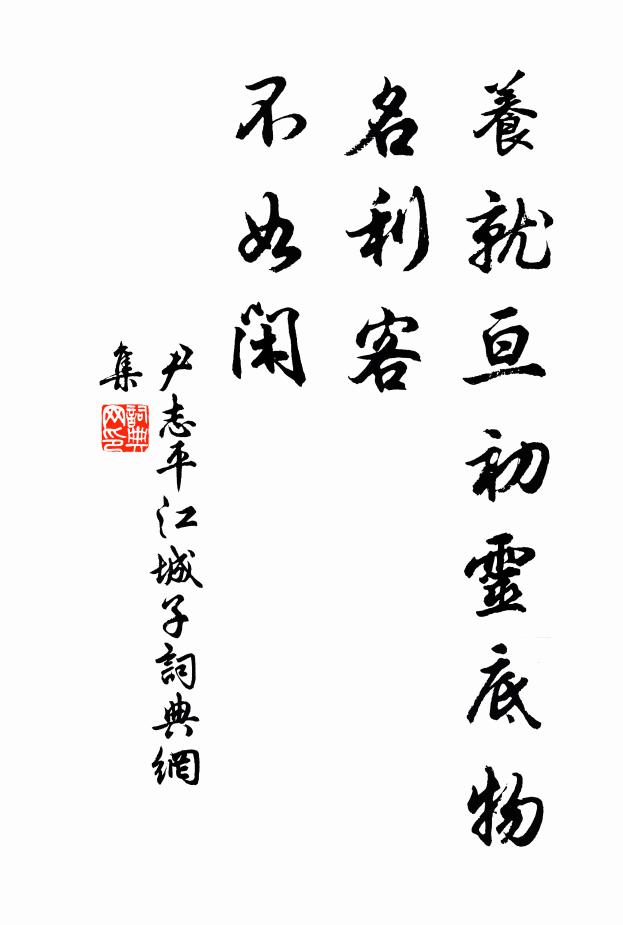 養就亘初靈底物
名利客
不如閑
尹志平江城子詞典網
集
詞典網印